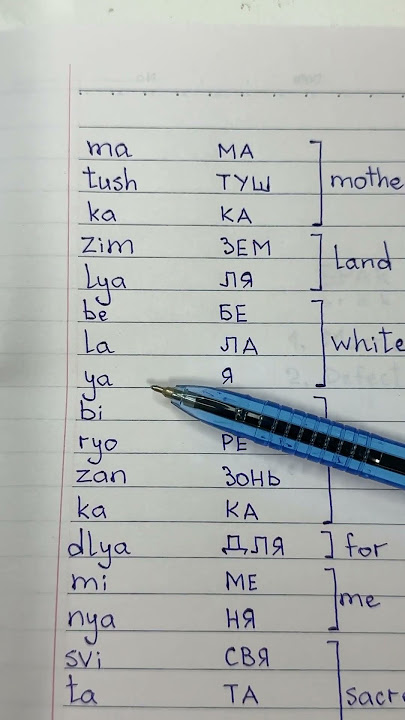 ma МА
tush ТУШ mothe
ka КА
zim ЗЕМ
Lya ЛЯ Land
be БЕ
La ЛА white
ya Я
bi
ryo РЕ
zan ЗОНЬ
ka КА
dlya ДЛЯ for
mi МЕ
nya НЯ me
svi СВЯ
ta ТА sacr